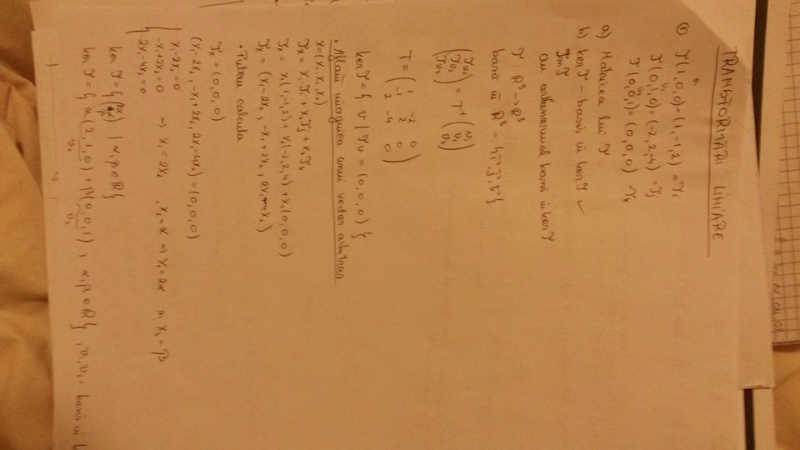 TRANSFORMĂRI LINIARE
① T(1,0,0)=(1,-1,2) = Ti
T(0,1,0)=(-2,2,-4) = Tj
T(0,0,1)=(0,0,0) = Tk
a) Matricea lui T
b) ker T - bază în ker T ✓
Im T
bază în ker T
T: R³→R³
bază în R³ = {i, j, k}
T = ( 1 -2 0
-1 2 0
2 -4 0 )
ker T = { v | Tv = (0,0,0) }
• Aflăm imaginea unui vector arbitrar
x=(x₁,x₂,x₃)
Tx = x₁Ti + x₂Tj + x₃Tk
Tx = x₁(1,-1,2) + x₂(-2,2,-4) + x₃(0,0,0)
Tx = (x₁-2x₂, -x₁+2x₂, 2x₁-4x₂)
• Putem calcula
Tx = (0,0,0)
(x₁-2x₂, -x₁+2x₂, 2x₁-4x₂) = (0,0,0)
x₁-2x₂=0
-x₁+2x₂=0 ⇒ x₁=2x₂, x₂=α ⇒ x₁=2α x₃=β
2x₁-4x₂=0
ker T = { | α,β∈R}
ker T = { α(2,1,0) + β(0,0,1), α,β∈R}, v₁,v₂ - bază în